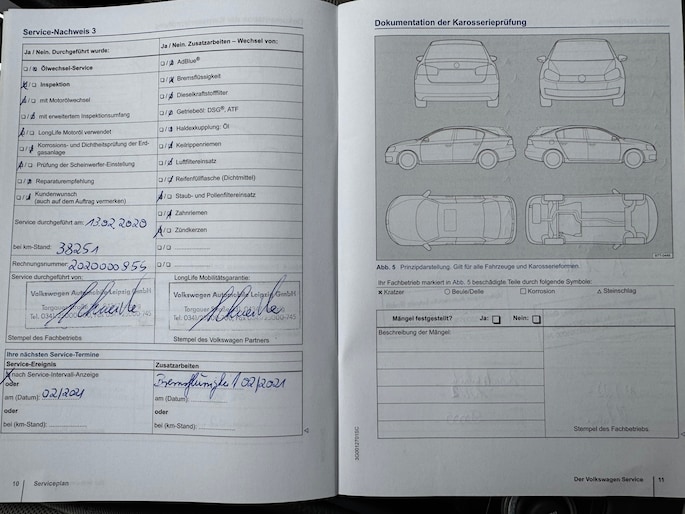 Service-Nachweis 3
Ja / Nein. Durchgeführt wurde:
Ölwechsel-Service
Inspektion
mit Motorölwechsel
mit erweitertem Inspektionsumfang
LongLife Motoröl verwendet
Korrosions- und Dichtheitsprüfung der Erd-
gasanlage
Prüfung der Scheinwerfer-Einstellung
Reparaturempfehlung
Kundenwunsch
(auch auf dem Auftrag vermerken)
Service durchgeführt am: 13.02.2020
bei km-Stand: 38251
Rechnungsnummer: 2020000955
Service durchgeführt von:
Volkswagen Automobile Leipzig GmbH
Stempel des Fachbetriebs
Ja / Nein. Zusatzarbeiten – Wechsel von:
AdBlue®
Bremsflüssigkeit
Dieselkraftstofffilter
Getriebeöl: DSG®, ATF
Haldexkupplung: Öl
Keilrippenriemen
Luftfiltereinsatz
Reifenfüllflasche (Dichtmittel)
Staub- und Pollenfiltereinsatz
Zahnriemen
Zündkerzen
LongLife Mobilitätsgarantie:
Volkswagen Automobile Leipzig GmbH
Stempel des Volkswagen Partners
Ihre nächsten Service-Termine
Service-Ereignis
nach Service-Intervall-Anzeige
oder
am (Datum): 02/2021
oder
bei (km-Stand):
Zusatzarbeiten
02/2021
am (Datum):
oder
bei (km-Stand):
10 Serviceplan
Dokumentation der Karosserieprüfung
Abb. 5 Prinzipdarstellung. Gilt für alle Fahrzeuge und Karosserieformen.
Ihr Fachbetrieb markiert in Abb. 5 beschädigte Teile durch folgende Symbole:
× Kratzer ○ Beule/Delle □ Korrosion △ Steinschlag
Mängel festgestellt? Ja: Nein:
Beschreibung der Mängel:
Stempel des Fachbetriebs
Der Volkswagen Service 11